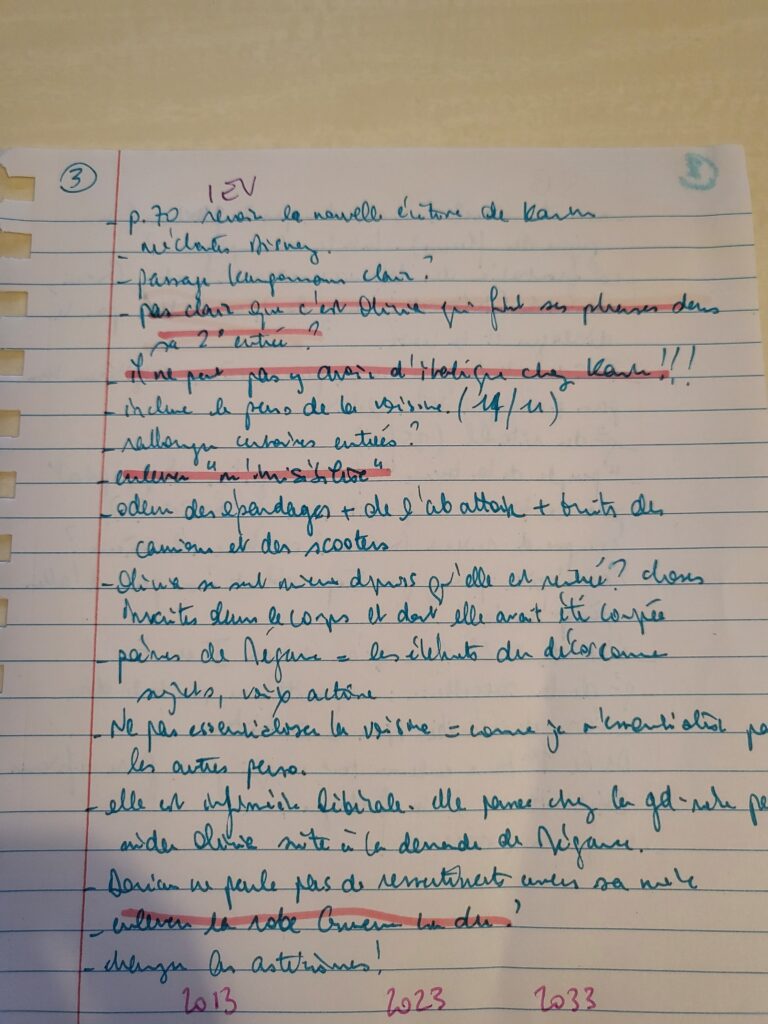 3
1EV
- p.70 revoir la nouvelle écriture de
- Disney.
- passage clair?
- pas clair que c'est Olivia qui finit ses phrases dans
sa 2e entrée?
- il ne peut pas y avoir d'italique chez !!!
- inclure le perso de la voisine. (14/11)
- rallonger certaines entrées?
- enlever "m'invisibilise"
- odeur des épandages + de l'abattoir + bruits des
camions et des scooters
- Olivia se sent mieux depuis qu'elle est rentrée? choses
inscrites dans le corps et dont elle avait été coupée
- de Mégane = les éléments du décor comme
sujets, voix active
- Ne pas essentialiser la voisine = comme je n'essentialise pa
les autres perso.
- elle est infirmière libérale. Elle passe chez la gd-mère pe
aider Olivia suite à la demande de Mégane.
- Dorian ne parle pas de ressentiments envers sa mère
- enlever la robe ?
- changer les astérismes!
2013 2023 2033